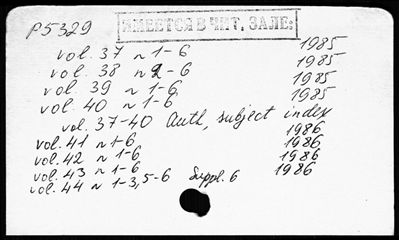 P5329
ИМЕЕТСЯ В ЧИТ. ЗАЛЕ:
vol. 37 n 1-6 1985
vol. 38 n 2-6 1985
vol. 39 n 1-6 1985
vol. 40 n 1-6 1985
vol. 37-40 Auth, subject index
vol. 41 n 1-6 1986
vol. 42 n 1-6 1986
vol. 43 n 1-6 1986
vol. 44 n 1-3, 5-6 Suppl. 6 1986